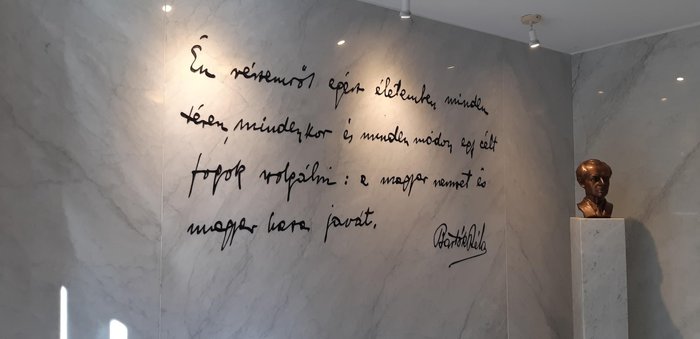 Én részemről egész életemben minden
téren, mindenkor és minden módon egy célt
fogok szolgálni: a magyar nemzet és
magyar haza javát.
Bartók Béla